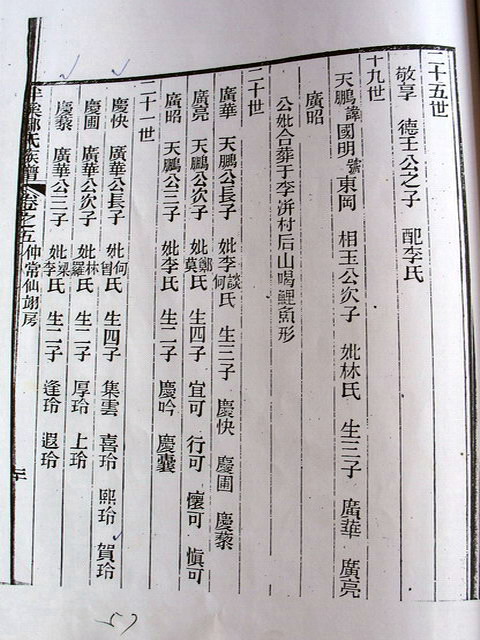 二十五世
敬享 德王公之子 配李氏
十九世
天鵬諱國明號東岡 相玉公次子 妣林氏 生三子 廣華 廣亮
廣昭
公妣合葬于李洴村后山喝鯉魚形
二十世
廣華 天鵬公長子 妣李談何氏 生三子 慶快 慶圃 慶藜
廣亮 天鵬公次子 妣鄭莫氏 生四子 宜可 行可 懷可 愼可
廣昭 天鵬公三子 妣李氏 生二子 慶吟 慶囊
二十一世
慶快 廣華公長子 妣何曾氏 生四子 集雲 喜玲 熙玲 賀玲
慶圃 廣華公次子 妣林羅氏 生二子 厚玲 上玲
慶藜 廣華公三子 妣梁李氏 生二子 逢玲 遐玲
氏族譜 卷之五 仲常仙翊房
57